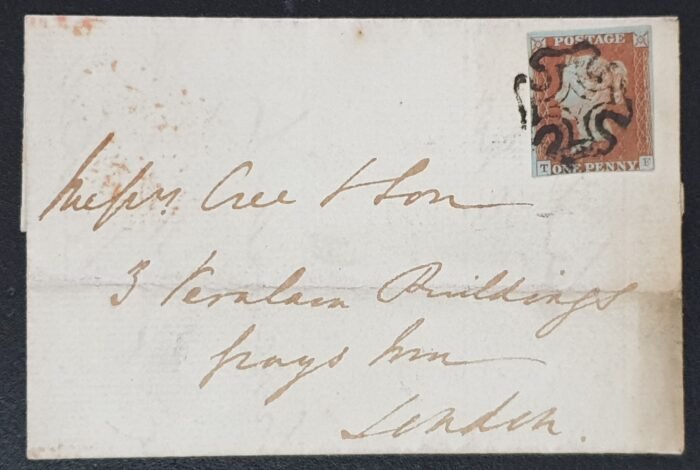 POSTAGE
T ONE PENNY E
Messrs Cree & Son
3 Verulam Buildings
Grays Inn
London.